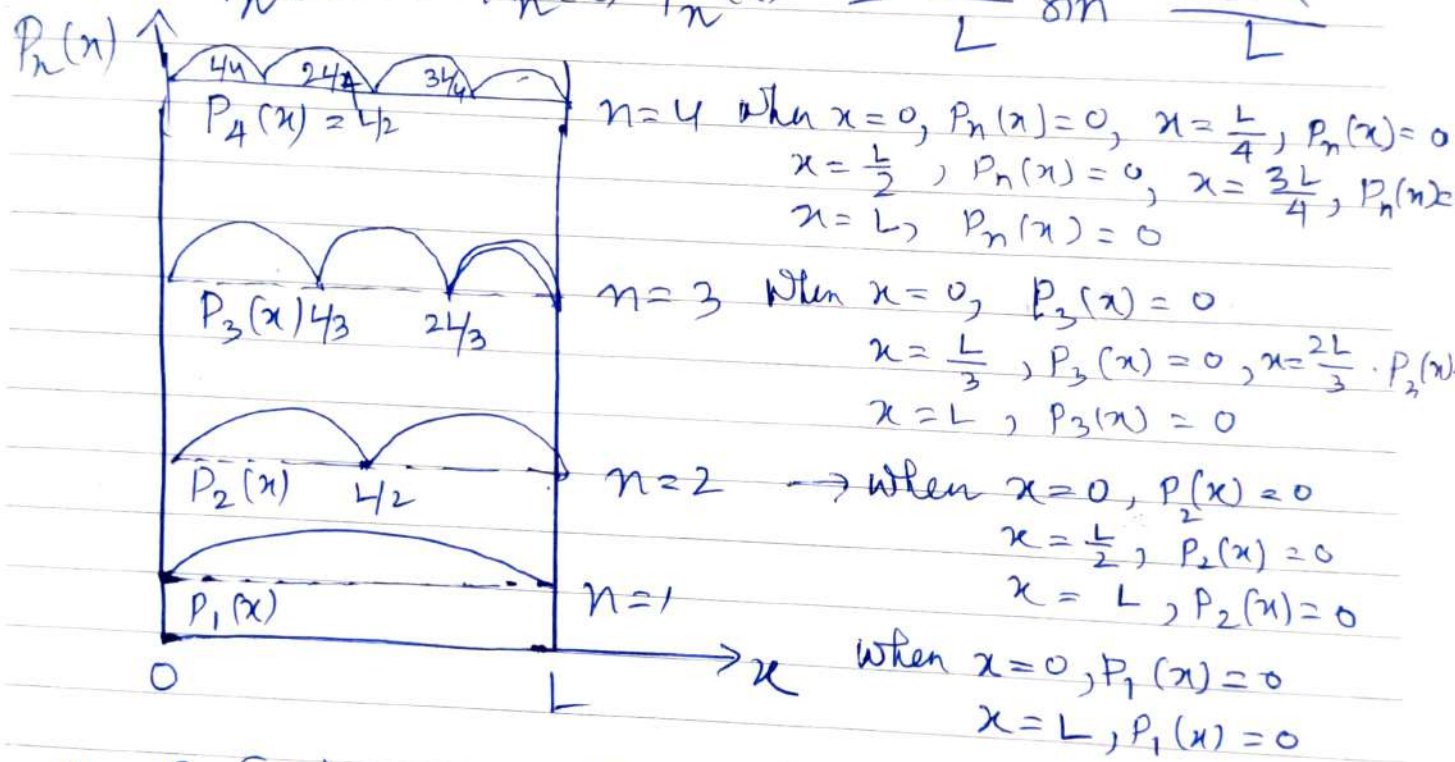 L sin L
Pn(x)
L/4 2L/4 3L/4
P4(x) = L/2
n=4 when x=0, Pn(x)=0, x=L/4, Pn(x)=0
x=L/2, Pn(x)=0, x=3L/4, Pn(x)=
x=L, Pn(x)=0
n=3 When x=0, P3(x)=0
P3(x) L/3 2L/3
x=L/3, P3(x)=0, x=2L/3. P3(x)
x=L, P3(x)=0
P2(x) L/2 n=2 → when x=0, P2(x)=0
x=L/2, P2(x)=0
x=L, P2(x)=0
P1(x) n=1
0 L x when x=0, P1(x)=0
x=L, P1(x)=0